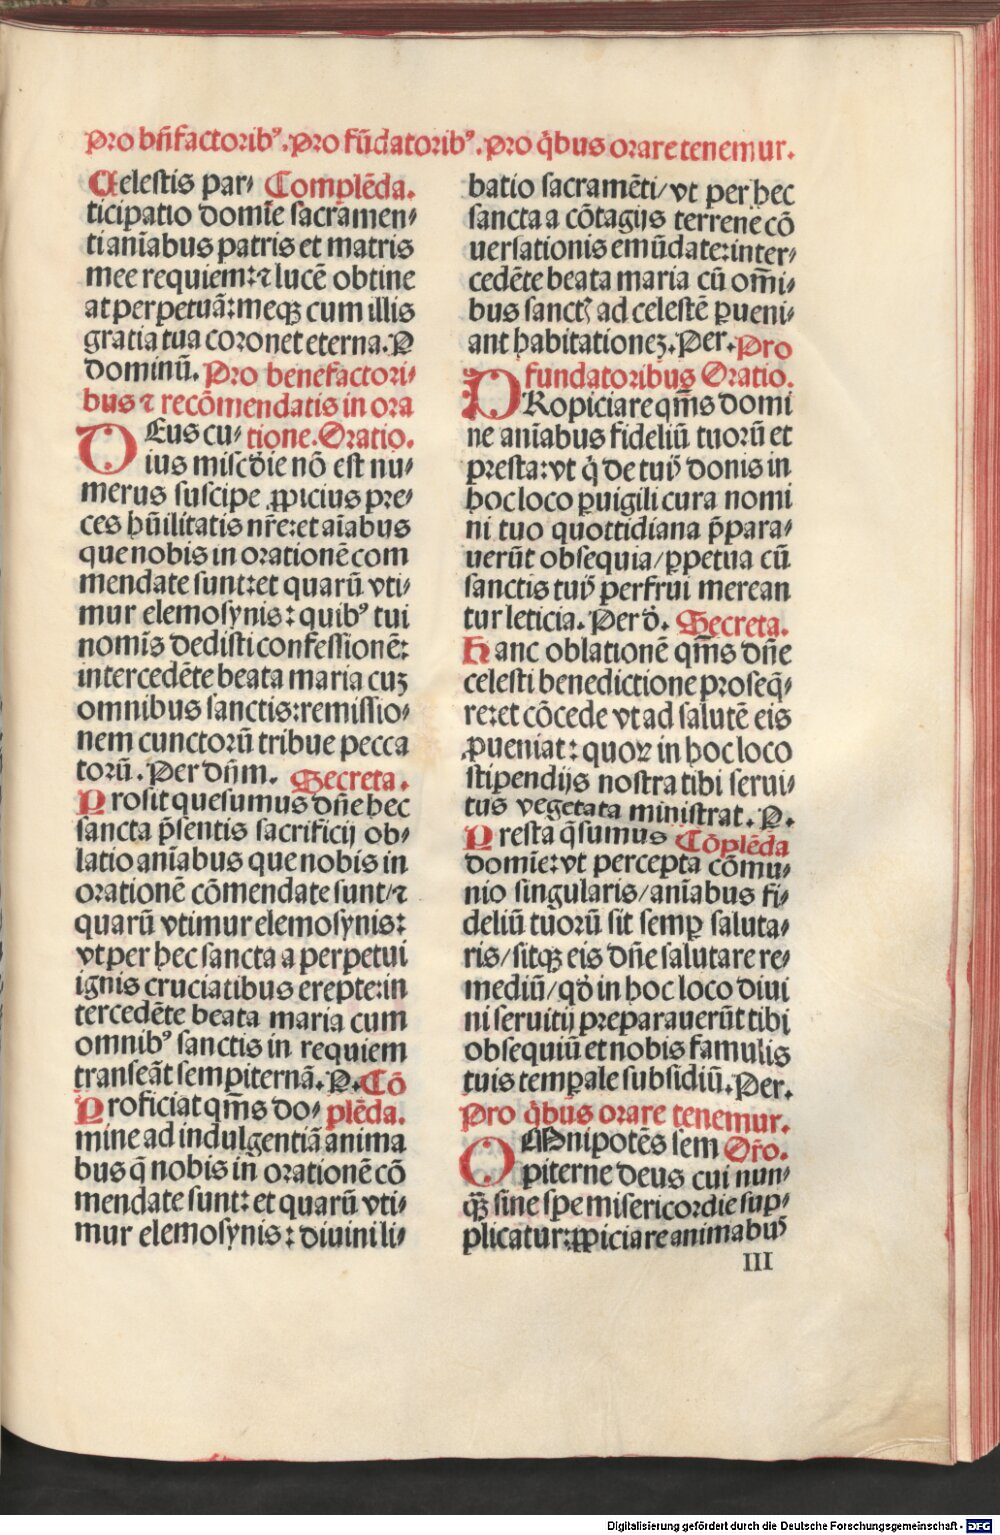 Pro bn̄factorib⁹. Pro fūdatorib⁹. Pro q̇bus orare tenemur.
Celestis par⸗ Complēda.
ticipatio domīe sacramen⸗
ti anīabus patris et matris
mee requiem: ⁊ lucē obtine
at perpetuā: meqȝ cum illis
gratia tua coronet eterna. P
dominū. Pro benefactori⸗
bus ⁊ recōmendatis in ora
DEus cu⸗ tione. Oratio.
ius miscd̄ie nō est nu⸗
merus suscipe ꝓpicius pre⸗
ces hūilitatis nr̄e: et aīabus
que nobis in orationē com
mendate sunt: et quarū vti⸗
mur elemosynis: quib⁹ tui
nomīs dedisti confessionē:
intercedēte beata maria cuȝ
omnibus sanctis: remissio⸗
nem cunctorū tribue pecca
torū. Per dn̄m. Secreta.
Prosit quesumus dn̄e hec
sancta p̄sentis sacrificij ob⸗
latio anīabus que nobis in
orationē cōmendate sunt/ ⁊
quarū vtimur elemosynis:
vt per hec sancta a perpetui
ignis cruciatibus erepte: in
tercedēte beata maria cum
omnib⁹ sanctis in requiem
transeāt sempiternā. P. Cō
Proficiat qm̄s do⸗ plēda.
mine ad indulgentiā anima
bus q̄ nobis in orationē cō
mendate sunt: et quarū vti⸗
mur elemosynis: diuini li⸗
batio sacramēti/ vt per hec
sancta a cōtagijs terrene cō
uersationis emūdate: inter⸗
cedēte beata maria cū om̄i⸗
bus sanctꝭ ad celestē ꝑueni⸗
ant habitationeȝ. Per. Pro
fundatoribus Oratio.
PRopiciare qm̄s domi
ne anīabus fideliū tuorū et
presta: vt q̇ de tuꝭ donis in
hoc loco ꝑuigili cura nomi
ni tuo quottidiana p̄para⸗
uerūt obsequia/ ꝑpetua cū
sanctis tuꝭ perfrui merean
tur leticia. Per d̄. Secreta.
Hanc oblationē qm̄s dn̄e
celesti benedictione proseq̄⸗
re: et cōcede vt ad salutē eis
ꝓueniat: quoꝝ in hoc loco
stipendijs nostra tibi serui⸗
tus vegetata ministrat. P.
Presta q̄sumus Cōplēda
domīe: vt percepta cōmu⸗
nio singularis/ anīabus fi⸗
deliū tuorū sit semꝑ saluta⸗
ris/ sitqȝ eis dn̄e salutare re⸗
mediū/ qd̄ in hoc loco diui
ni seruitij preparauerūt tibi
obsequiū et nobis famulis
tuis temꝑale subsidiū. Per.
Pro q̇bus orare tenemur.
OMnipotēs sem Or̄o.
piterne deus cui nun⸗
qȝ̄ sine spe misericordie sup⸗
plicatur: ꝓpiciare animabus
III
Digitalisierung gefördert durch die Deutsche Forschungsgemeinschaft - DFG